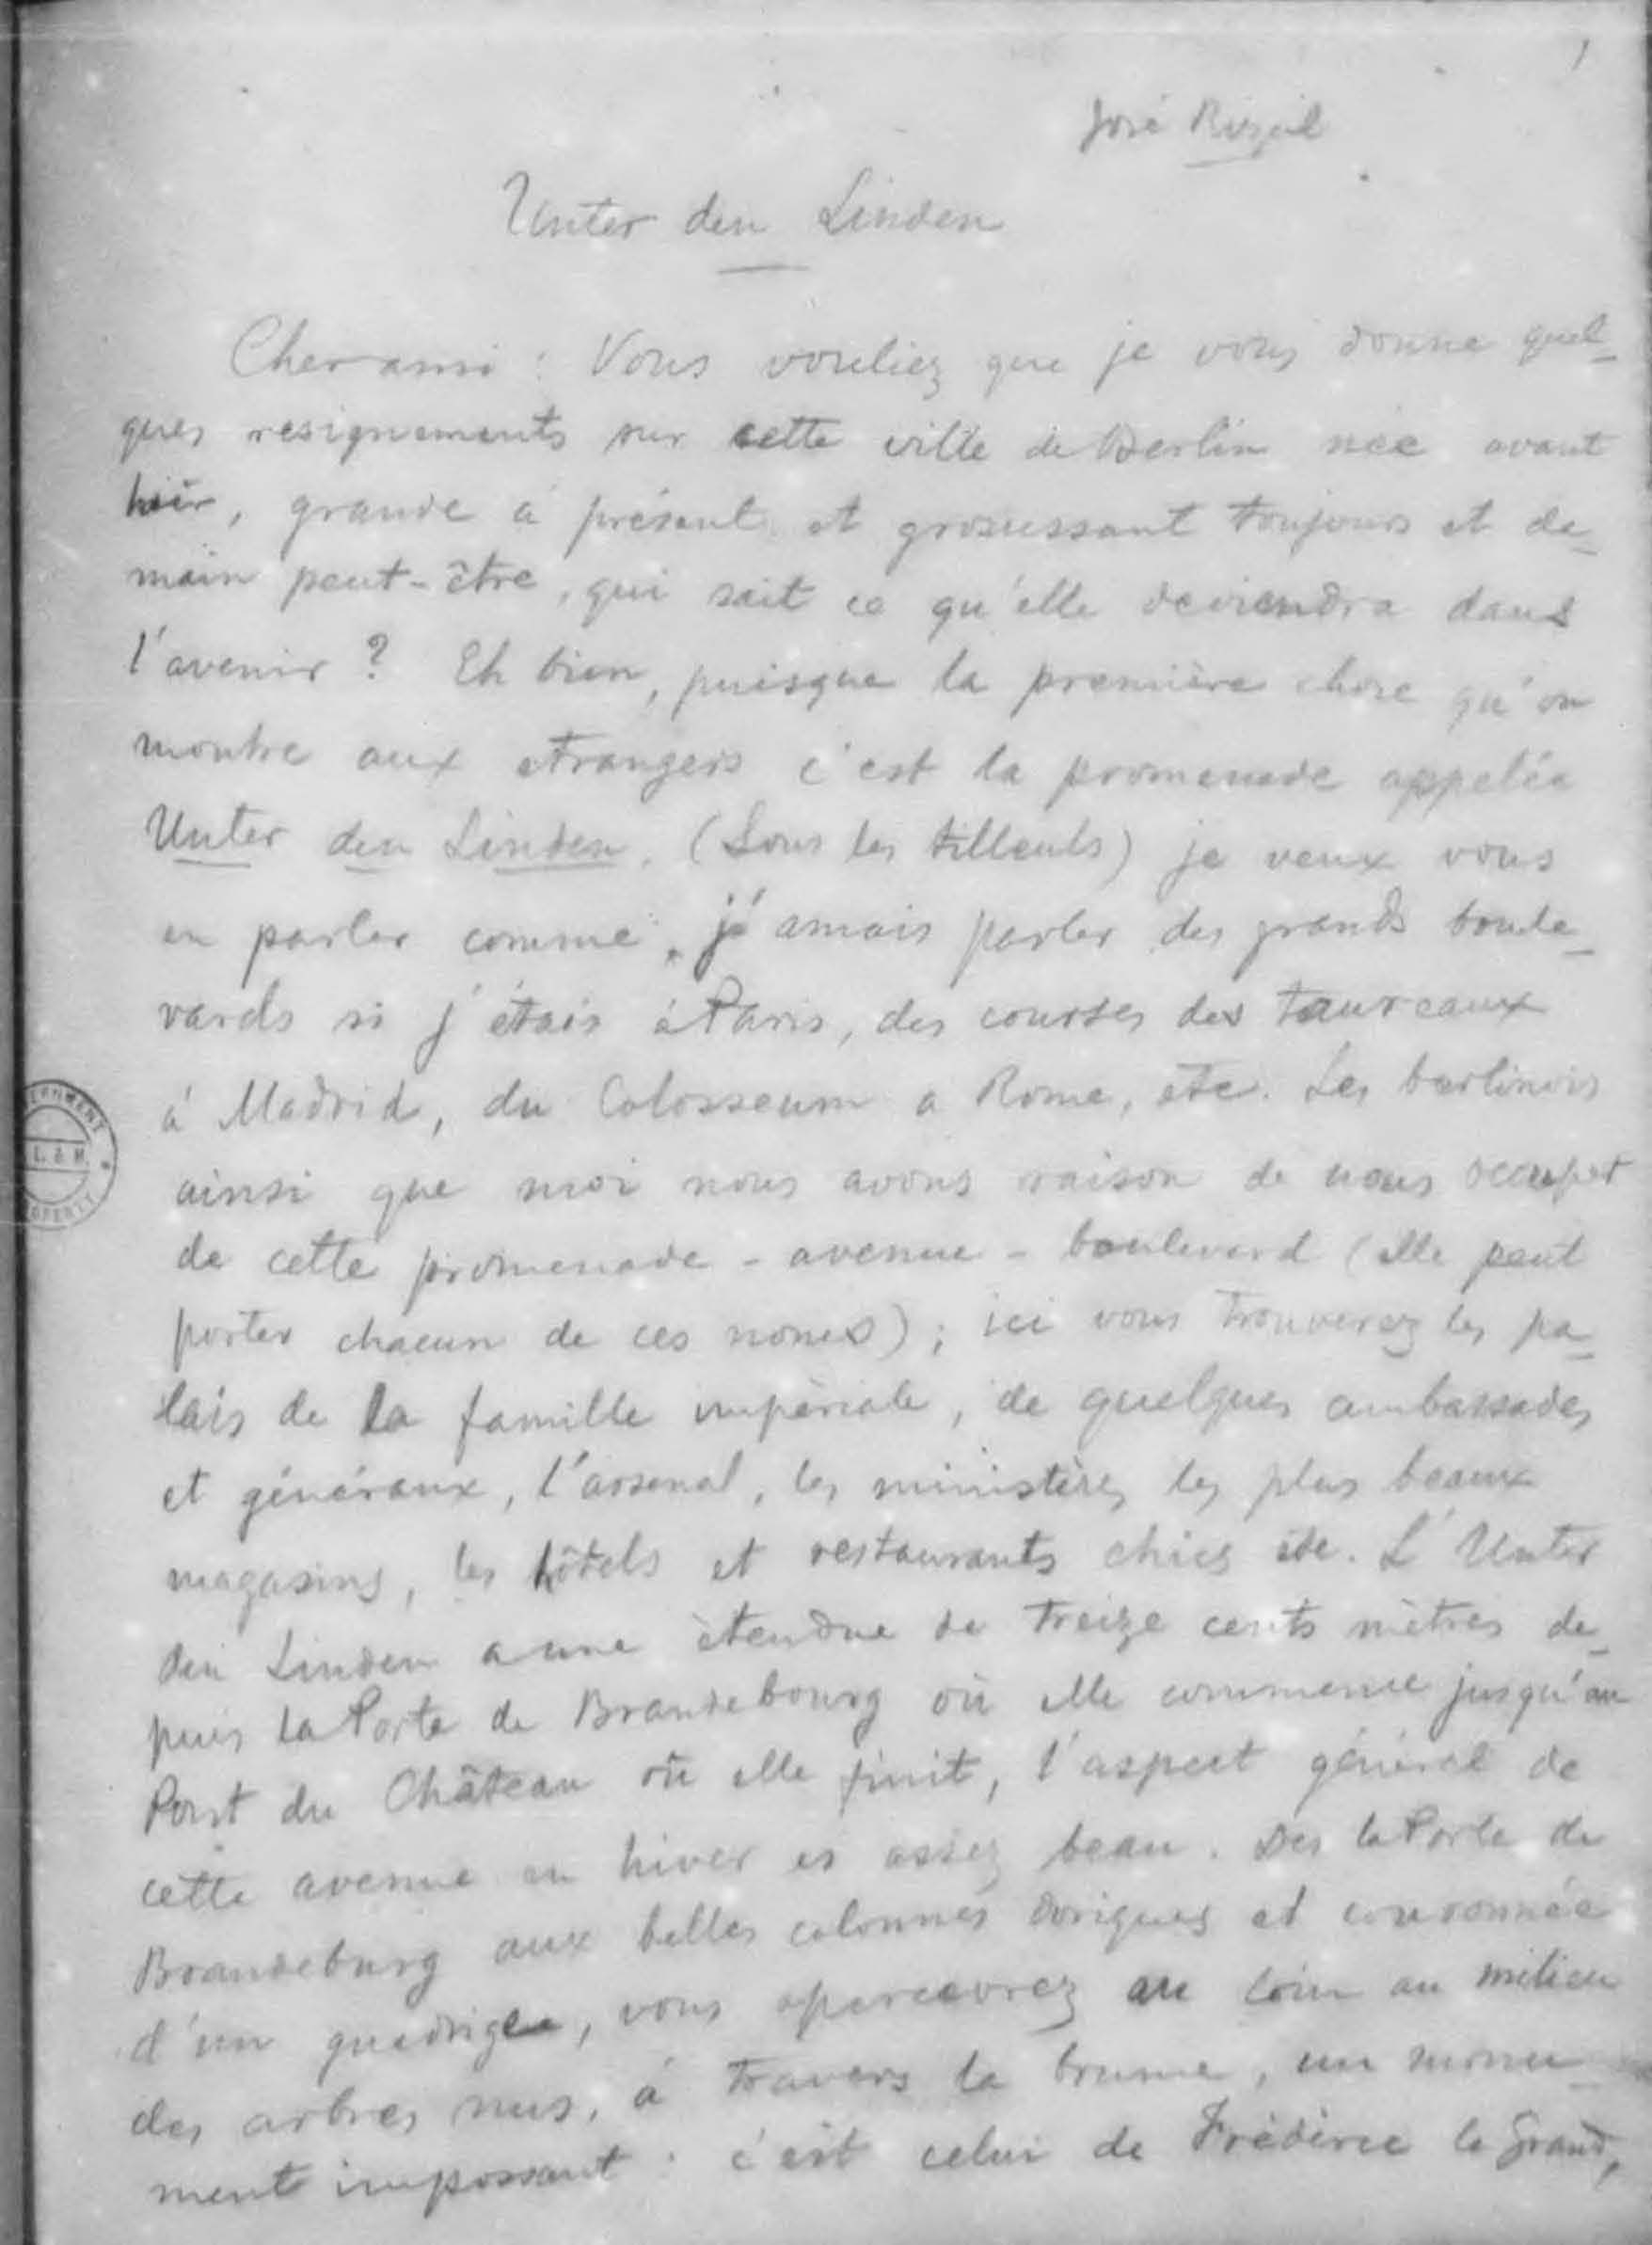 1
José Rizal
Unter den Linden
Cher ami : Vous vouliez que je vous donne quel-
ques resignements sur cette ville de Berlin née avant
hier, grande à présent et grossissant toujours et de-
main peut-être, qui sait ce qu'elle deviendra dans
l'avenir ? Eh bien, puisque la première chose qu'on
montre aux etrangers c'est la promenade appelée
Unter den Linden, (Sous les tilleuls) je veux vous
en parler comme j'amais parler des grands boule-
vards si j'étais à Paris, des courses des taureaux
à Madrid, du Colosseum a Rome, etc. Les berlinois
ainsi que moi nous avons raison de nous occuper
de cette promenade - avenue - boulevard (elle peut
porter chacun de ces noms) ; ici vous trouverez les pa-
lais de la famille impériale, de quelques ambassades
et généraux, l'arsenal, les ministères, les plus beaux
magasins, les hôtels et restaurants chics etc. L'Unter
den Linden a une étendue de treize cents mètres de-
puis la Porte de Brandebourg où elle commence jusqu'au
Pont du Château où elle finit, l'aspect général de
cette avenue en hiver es assez beau. Des la Porte de
Brandeburg aux belles colonnes doriques et couronnée
d'un quadrige, vous apercevrez au loin au milieu
des arbres nus, à travers la brume, un monu-
ment impossant : c'est celui de Fréderic le Grand,
ERNMENT
L. & H.
OPERTY